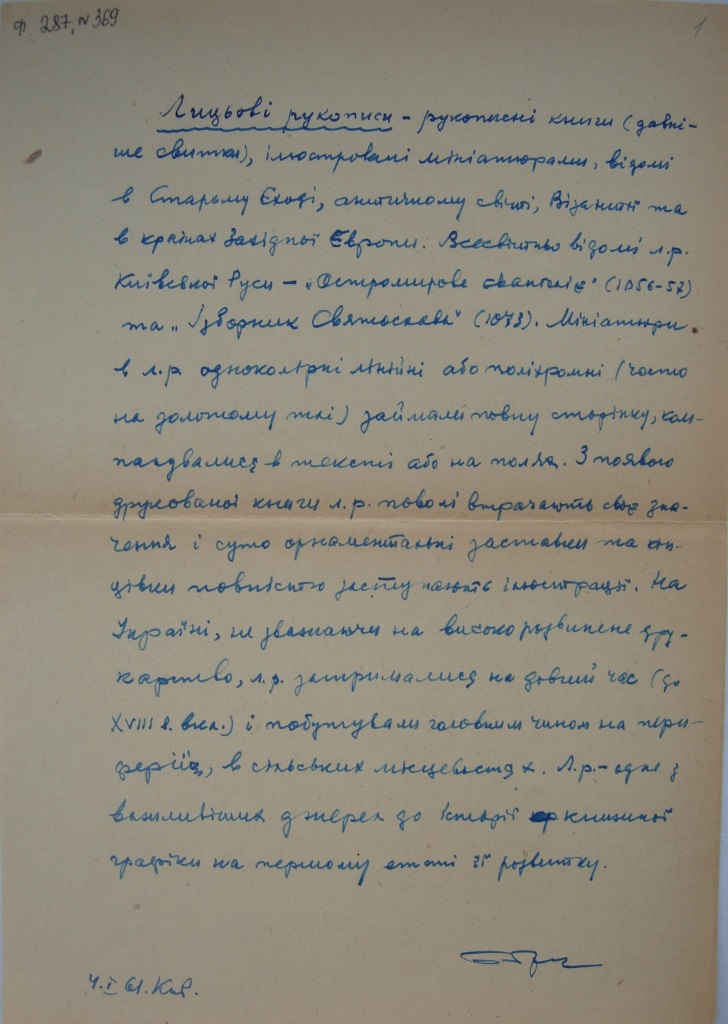 Ф. 287, № 369
1
Лицьові рукописи – рукописні книги (давні-
ше свитки), ілюстровані мініатюрами, відомі
в Старому Сході, античному світі, Візантії та
в країнах Західної Європи. Всесвітньо відомі л.р.
Київської Руси – „Остромирове євангеліє" (1056-57)
та „Ізборник Святослава" (1073). Мініатюри
в л.р. одноколірні лінійні або поліхромні (часто
на золотому тлі) займали повну сторінку, ком-
панувались в тексті або на полях. З появою
друкованої книги л.р. поволі втрачають своє зна-
чення і суто орнаментальні заставки та кін-
цівки повністю заступають ілюстрації. На
Україні, не зважаючи на високорозвинене дру-
карство, л.р. затримались на довгий час (до
XVIII в. вкл.) і побутували головним чином на пери-
ферії, в сільських місцевостях. Л.р. – одне з
важливіших джерел до історії книжної
графіки на першому етапі її розвитку.
4.I 61. Київ.